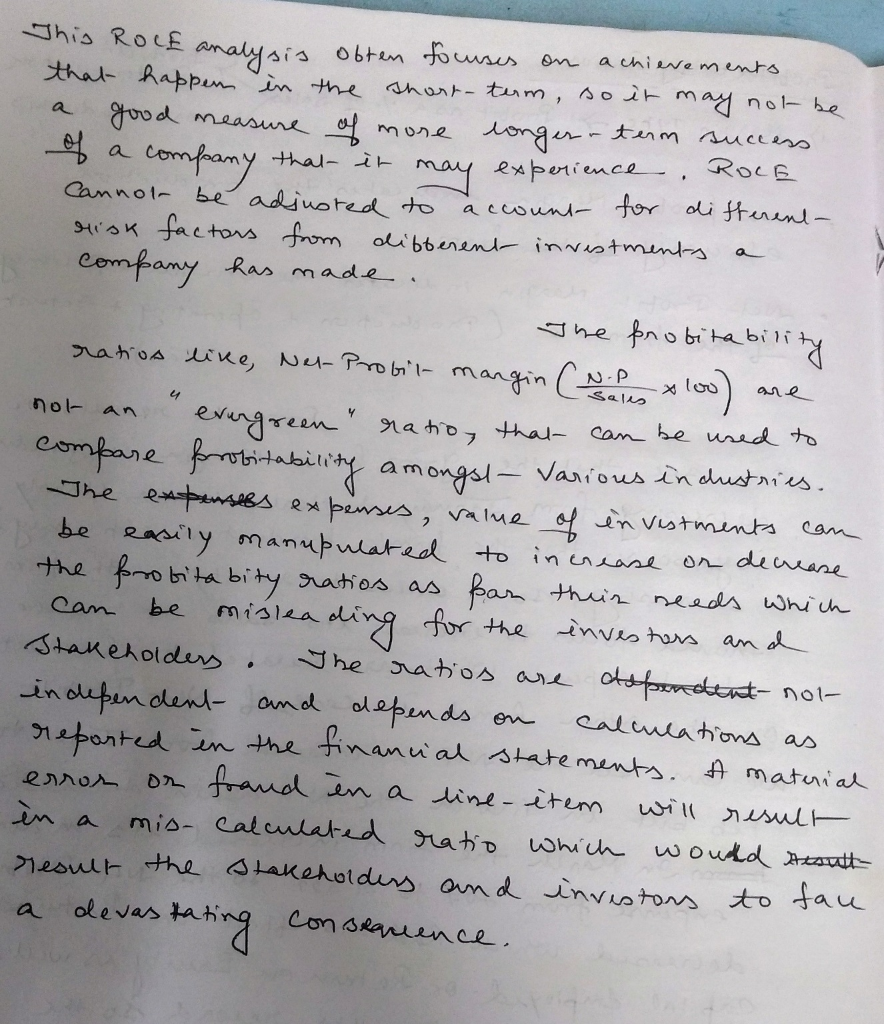 This ROCE analysis obten focuses on achievements
that happen in the short-term, so it may not be
a good measure of more longer-term success
of a company that it may experience. ROCE
cannot be adjusted to account for different
risk factors from dibberent investments a
company has made.
The probitability
ratios like, Net Probit margin (N.P / Sales x 100) are
not an "evergreen" ratio, that can be used to
compare probitability amongst various industries.
The expenses expenses, value of investments can
be easily manupulated to increase or decrease
the probitabity ratios as par their needs which
can be misleading for the investors and
stakeholders. The ratios are dependent not
independent and depends on calculations as
reported in the financial statements. A material
error or fraud in a line-item will result
in a mis-calculated ratio which would result
result the stakeholders and investors to face
a devastating consequence.